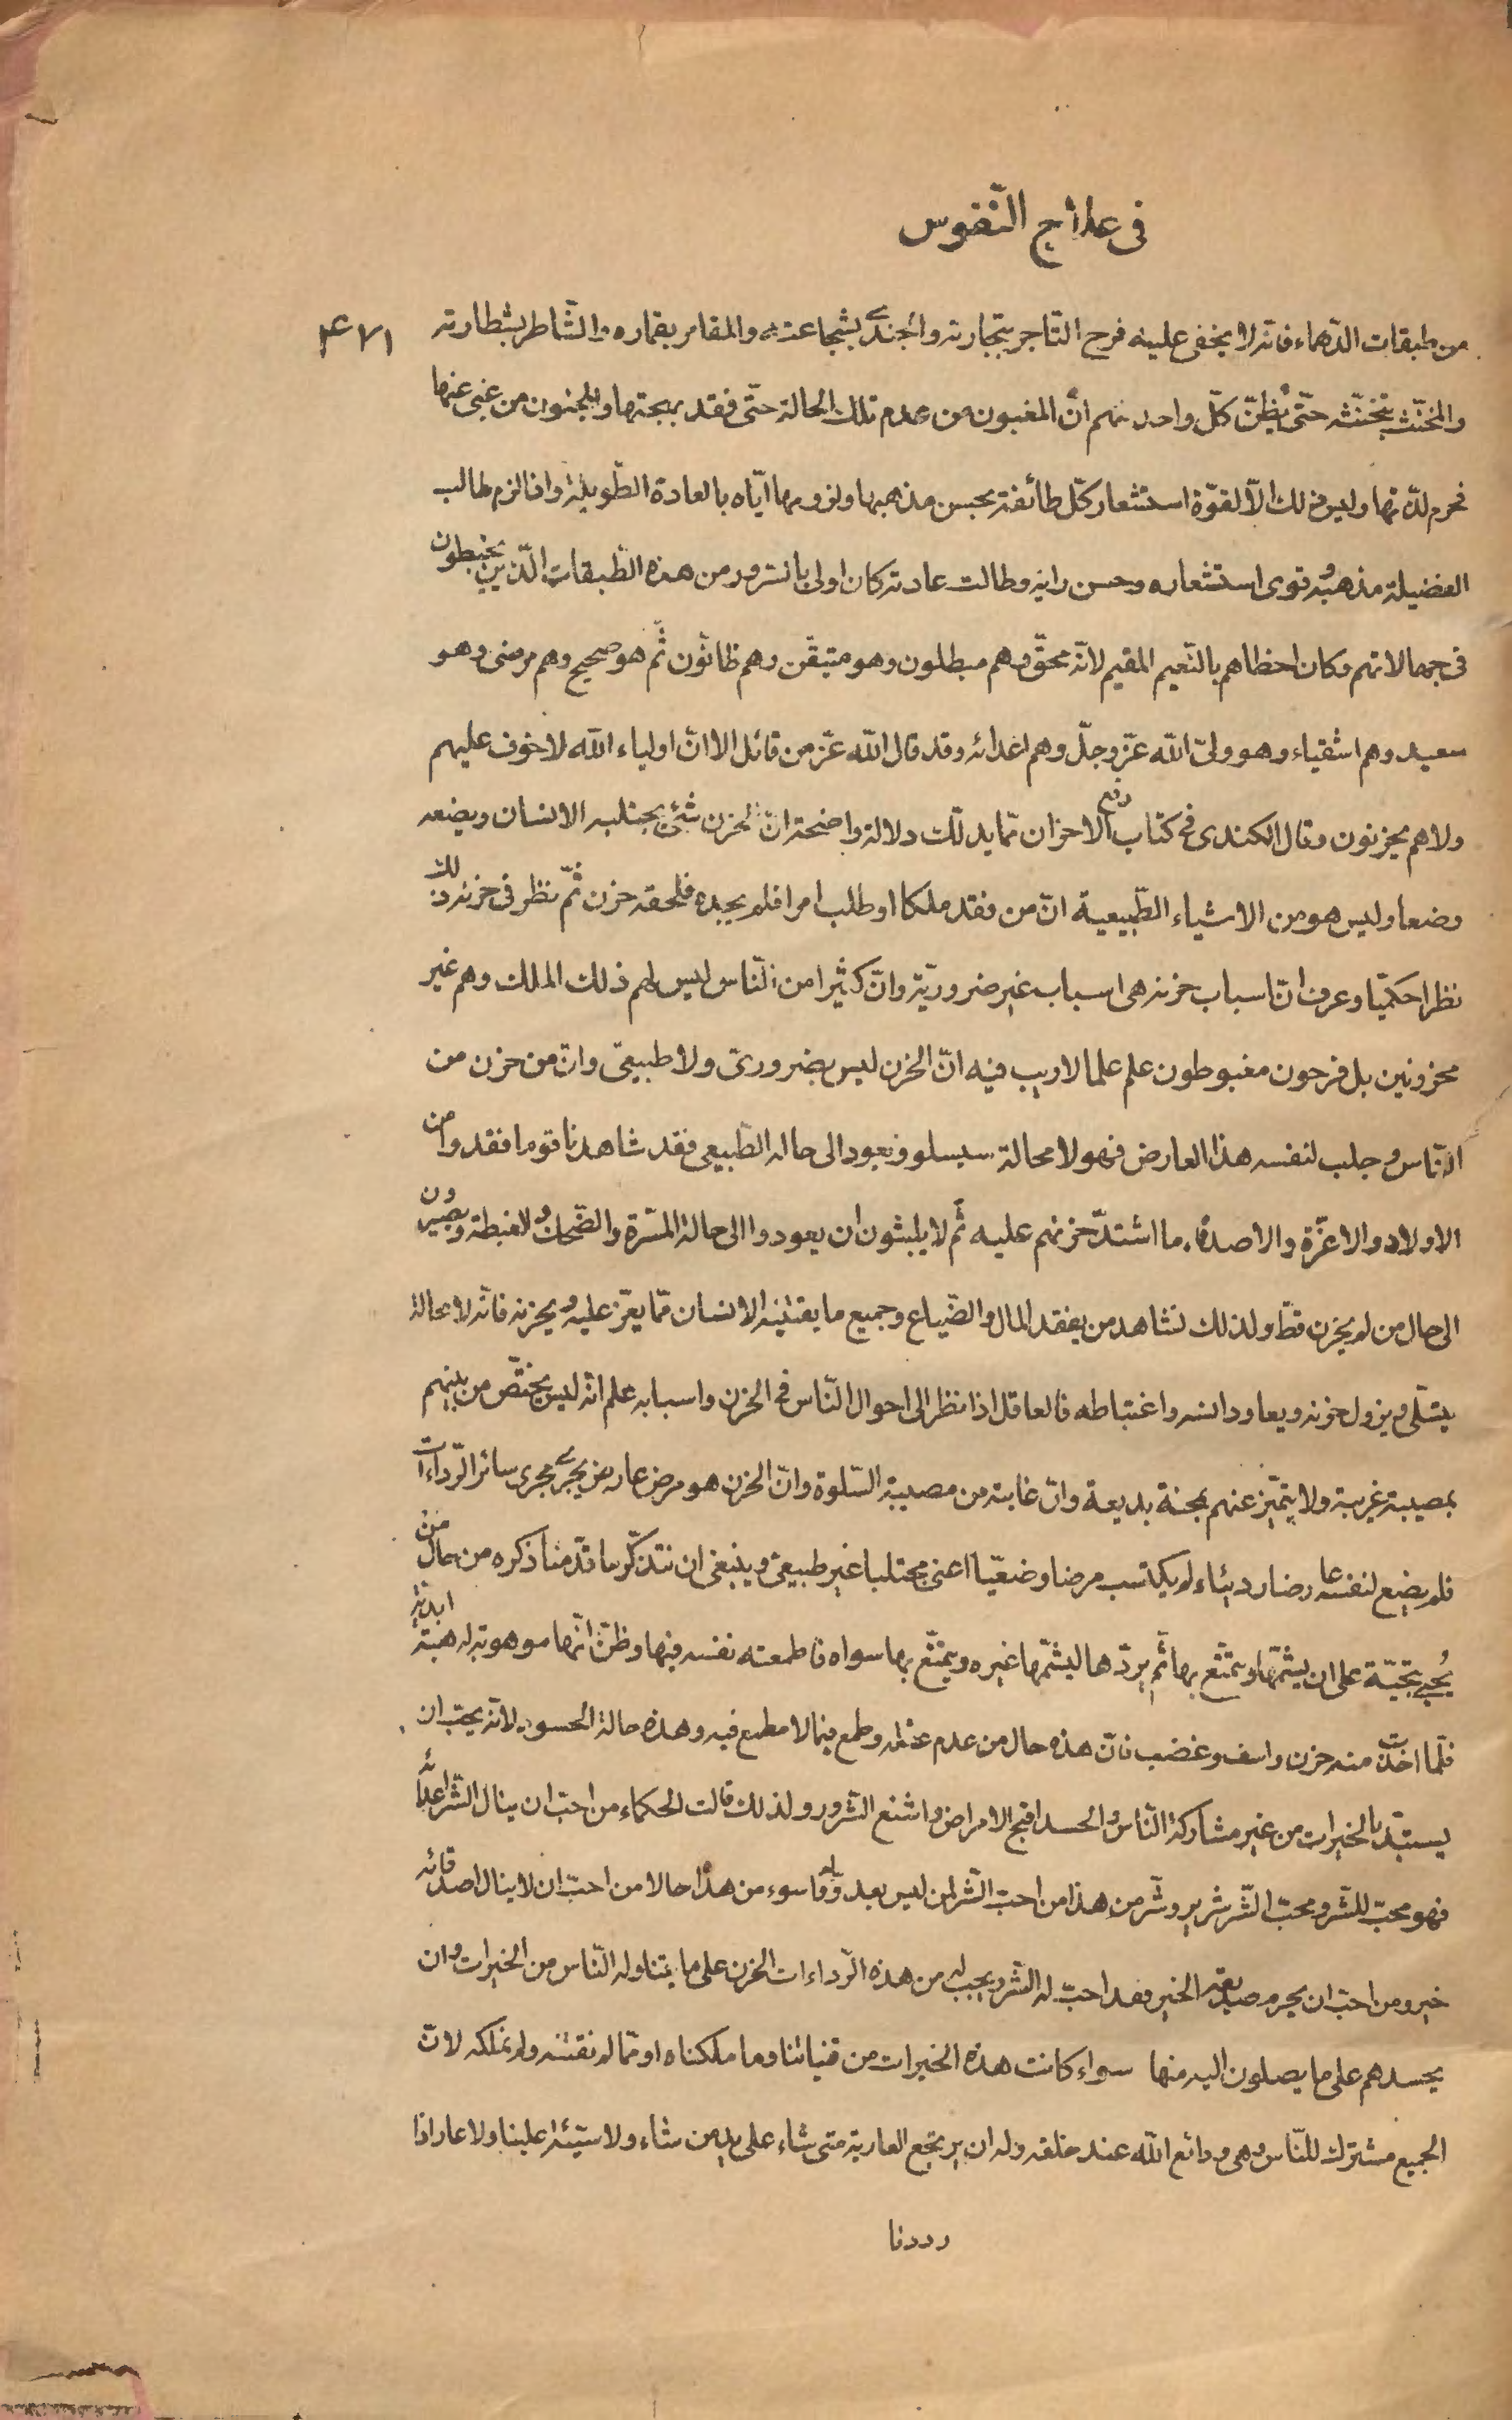 فى علاج النّفوس
من طبقات الدّهماء فانّه لا يخفى عليه فرح التّاجر بتجارته والجندىّ بشجاعته والمقامر بقماره والشّاطر بشطارته ۴۷۱
والمخنّث بتخنّثه حتّى يظنّ كلّ واحد منهم انّ المغبون من عدم تلك الحالة حتّى فقد بهجتها والمجنون من غبى عنها
فحرم لذّتها وليس ذلك الّا لقوّة استشعار كلّ طائفة بحسن مذهبها ولزومها ايّاه بالعادة الطّويلة واذا لزم طالب
الفضيلة مذهبه وقوى استشعاره وحسن رايه وطالت عادته كان اولى بالسّرور من هذه الطّبقات الّذين يخبطون
فى جهالاتهم وكان احظاهم بالنّعيم المقيم لانّه محقّ وهم مبطلون وهو متيقّن وهم ظانّون ثمّ هو صحيح وهم مرضى وهو
سعيد وهم اشقياء وهو ولىّ اللّه عزّ وجلّ وهم اعدائه وقد قال اللّه عزّ من قائل الا انّ اولياء اللّه لا خوف عليهم
ولا هم يحزنون وقال الكندى فى كتاب دفع الاحزان ممّا يدلّك دلالة واضحة انّ الحزن شئ يجتلبه الانسان ويضعه
وضعا وليس هو من الاشياء الطّبيعية انّ من فقد ملكا او طلب امرا فلم يجده فلحقه حزن ثمّ نظر فى حزنه ذلك
نظرا حكميّا وعرف انّ اسباب حزنه هى اسباب غير ضروريّة وانّ كثيرا من النّاس ليس لهم ذلك الملك وهم غير
محزونين بل فرحون مغبوطون علم علما لا ريب فيه انّ الحزن ليس بضرورىّ ولا طبيعىّ وانّ من حزن من
النّاس وجلب لنفسه هذا العارض فهو لا محالة سيسلو ويعود الى حاله الطّبيعى فقد شاهدنا قوما فقدوا من
الاولاد والاعزّة والاصدقاء ما اشتدّ حزنهم عليه ثمّ لا يلبثون ان يعودوا الى حالة المسّرة والضّحك والغبطة ويصيرون
الى حال من لم يحزن قطّ ولذلك نشاهد من يفقد المال والضّياع وجميع ما يقتنيه الانسان ممّا يعزّ عليه ويحزنه فانّه لا محالة
يتسلّى ويزول حزنه ويعاود انسه واغتباطه فالعاقل اذا نظر الى احوال النّاس فى الحزن واسبابه علم انّه ليس يختصّ من بينهم
بمصيبة غريبة ولا يتميّز عنهم بمحنة بديعة وانّ غايته من مصيبة السّلوة وانّ الحزن هو مرض عارض يجرى مجرى سائر الرّداءات
فلم يضع لنفسه عارضا رديئا ولم يكتسب مرضا وضعيّا اعنى مجتلبا غير طبيعىّ وينبغى ان نتذكّر ما قدّمنا ذكره من حال من
يُحيّى بتحيّة على ان يشمّها ويتمتّع بها ثمّ يردّها ليشمّها غيره ويتمتّع بها سواه فاطمعته نفسه فيها وظنّ انّها موهوبة له هبة ابديّة
فلمّا اخذت منه حزن واسف وغضب فانّ هذه حال من عدم عقله وطمع فيما لا مطمع فيه وهذه حالة الحسود لانّه يحبّ ان
يستبدّ بالخيرات من غير مشاركة النّاس والحسد اقبح الامراض واشنع الشّرور ولذلك قالت الحكماء من احبّ ان ينال الشّر اعدائه
فهو محبّ للشّر ومحبّ الشّر شرير وشّر من هذا من احبّ الشّر لمن ليس بعدوّ له واسوء من هذا حالا من احبّ ان لا ينال اصدقائه
خير ومن احبّ ان يحرم صديقه الخير فقد احبّ له الشّر ويجب له من هذه الرّداءات الحزن على ما يتناوله النّاس من الخيرات وان
يحسدهم على ما يصلون اليه منها سواء كانت هذه الخيرات من قنياتنا وما ملكناه او ممّا لم نقتنه ولم نملكه لانّ
الجميع مشترك للنّاس وهى ودائع اللّه عند خلقه وله ان يرتجع العارية متى شاء على يد من شاء ولا سيّئة علينا ولا عار اذا
رددنا